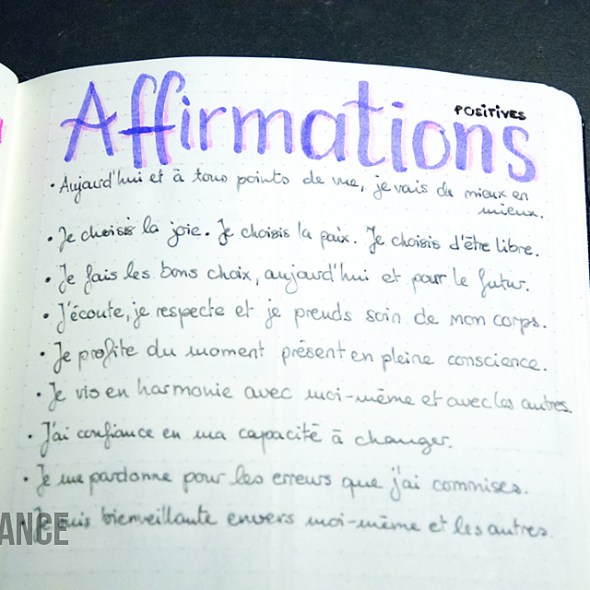 Affirmations
POSITIVES
• Aujourd'hui et à tous points de vue, je vais de mieux en
mieux.
• Je choisis la joie. Je choisis la paix. Je choisis d'être libre.
• Je fais les bons choix, aujourd'hui et pour le futur.
• J'écoute, je respecte et je prends soin de mon corps.
• Je profite du moment présent en pleine conscience.
• Je vis en harmonie avec moi-même et avec les autres.
• J'ai confiance en ma capacité à changer.
• Je me pardonne pour les erreurs que j'ai commises.
• Je suis bienveillante envers moi-même et les autres.
ANCE